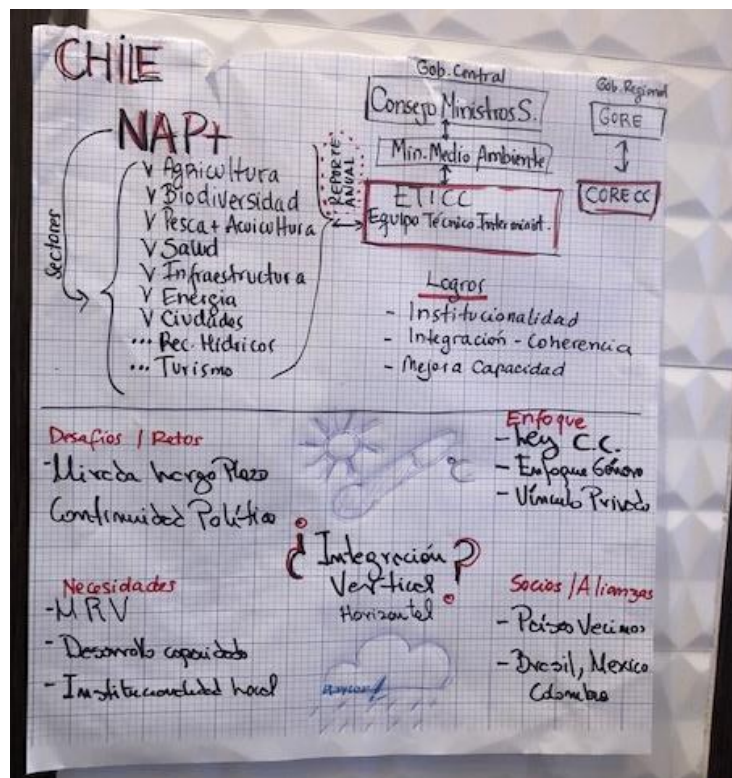 CHILE
NAP+
Sectores
v Agricultura
v Biodiversidad
v Pesca + Acuicultura
v Salud
v Infraestructura
v Energía
v Ciudades
... Rec. Hídricos
... Turismo
REPORTE
ANUAL
Gob. Central
Consejo Ministros S.
Min. Medio Ambiente
ETICC
Equipo Técnico Interminist.
Gob. Regional
GORE
CORECC
Logros
- Institucionalidad
- Integración - Coherencia
- Mejora Capacidad
Desafíos / Retos
- Mirada Largo Plazo
Continuidad Política
Enfoque
- Ley C.C.
- Enfoque Género
- Vínculo Privado
°C
¿Integración
Vertical?
Horizontal
Necesidades
- MRV
- Desarrollo capacidades
- Institucionalidad local
Socios / Alianzas
- Países Vecinos
- Brasil, Mexico
Colombia